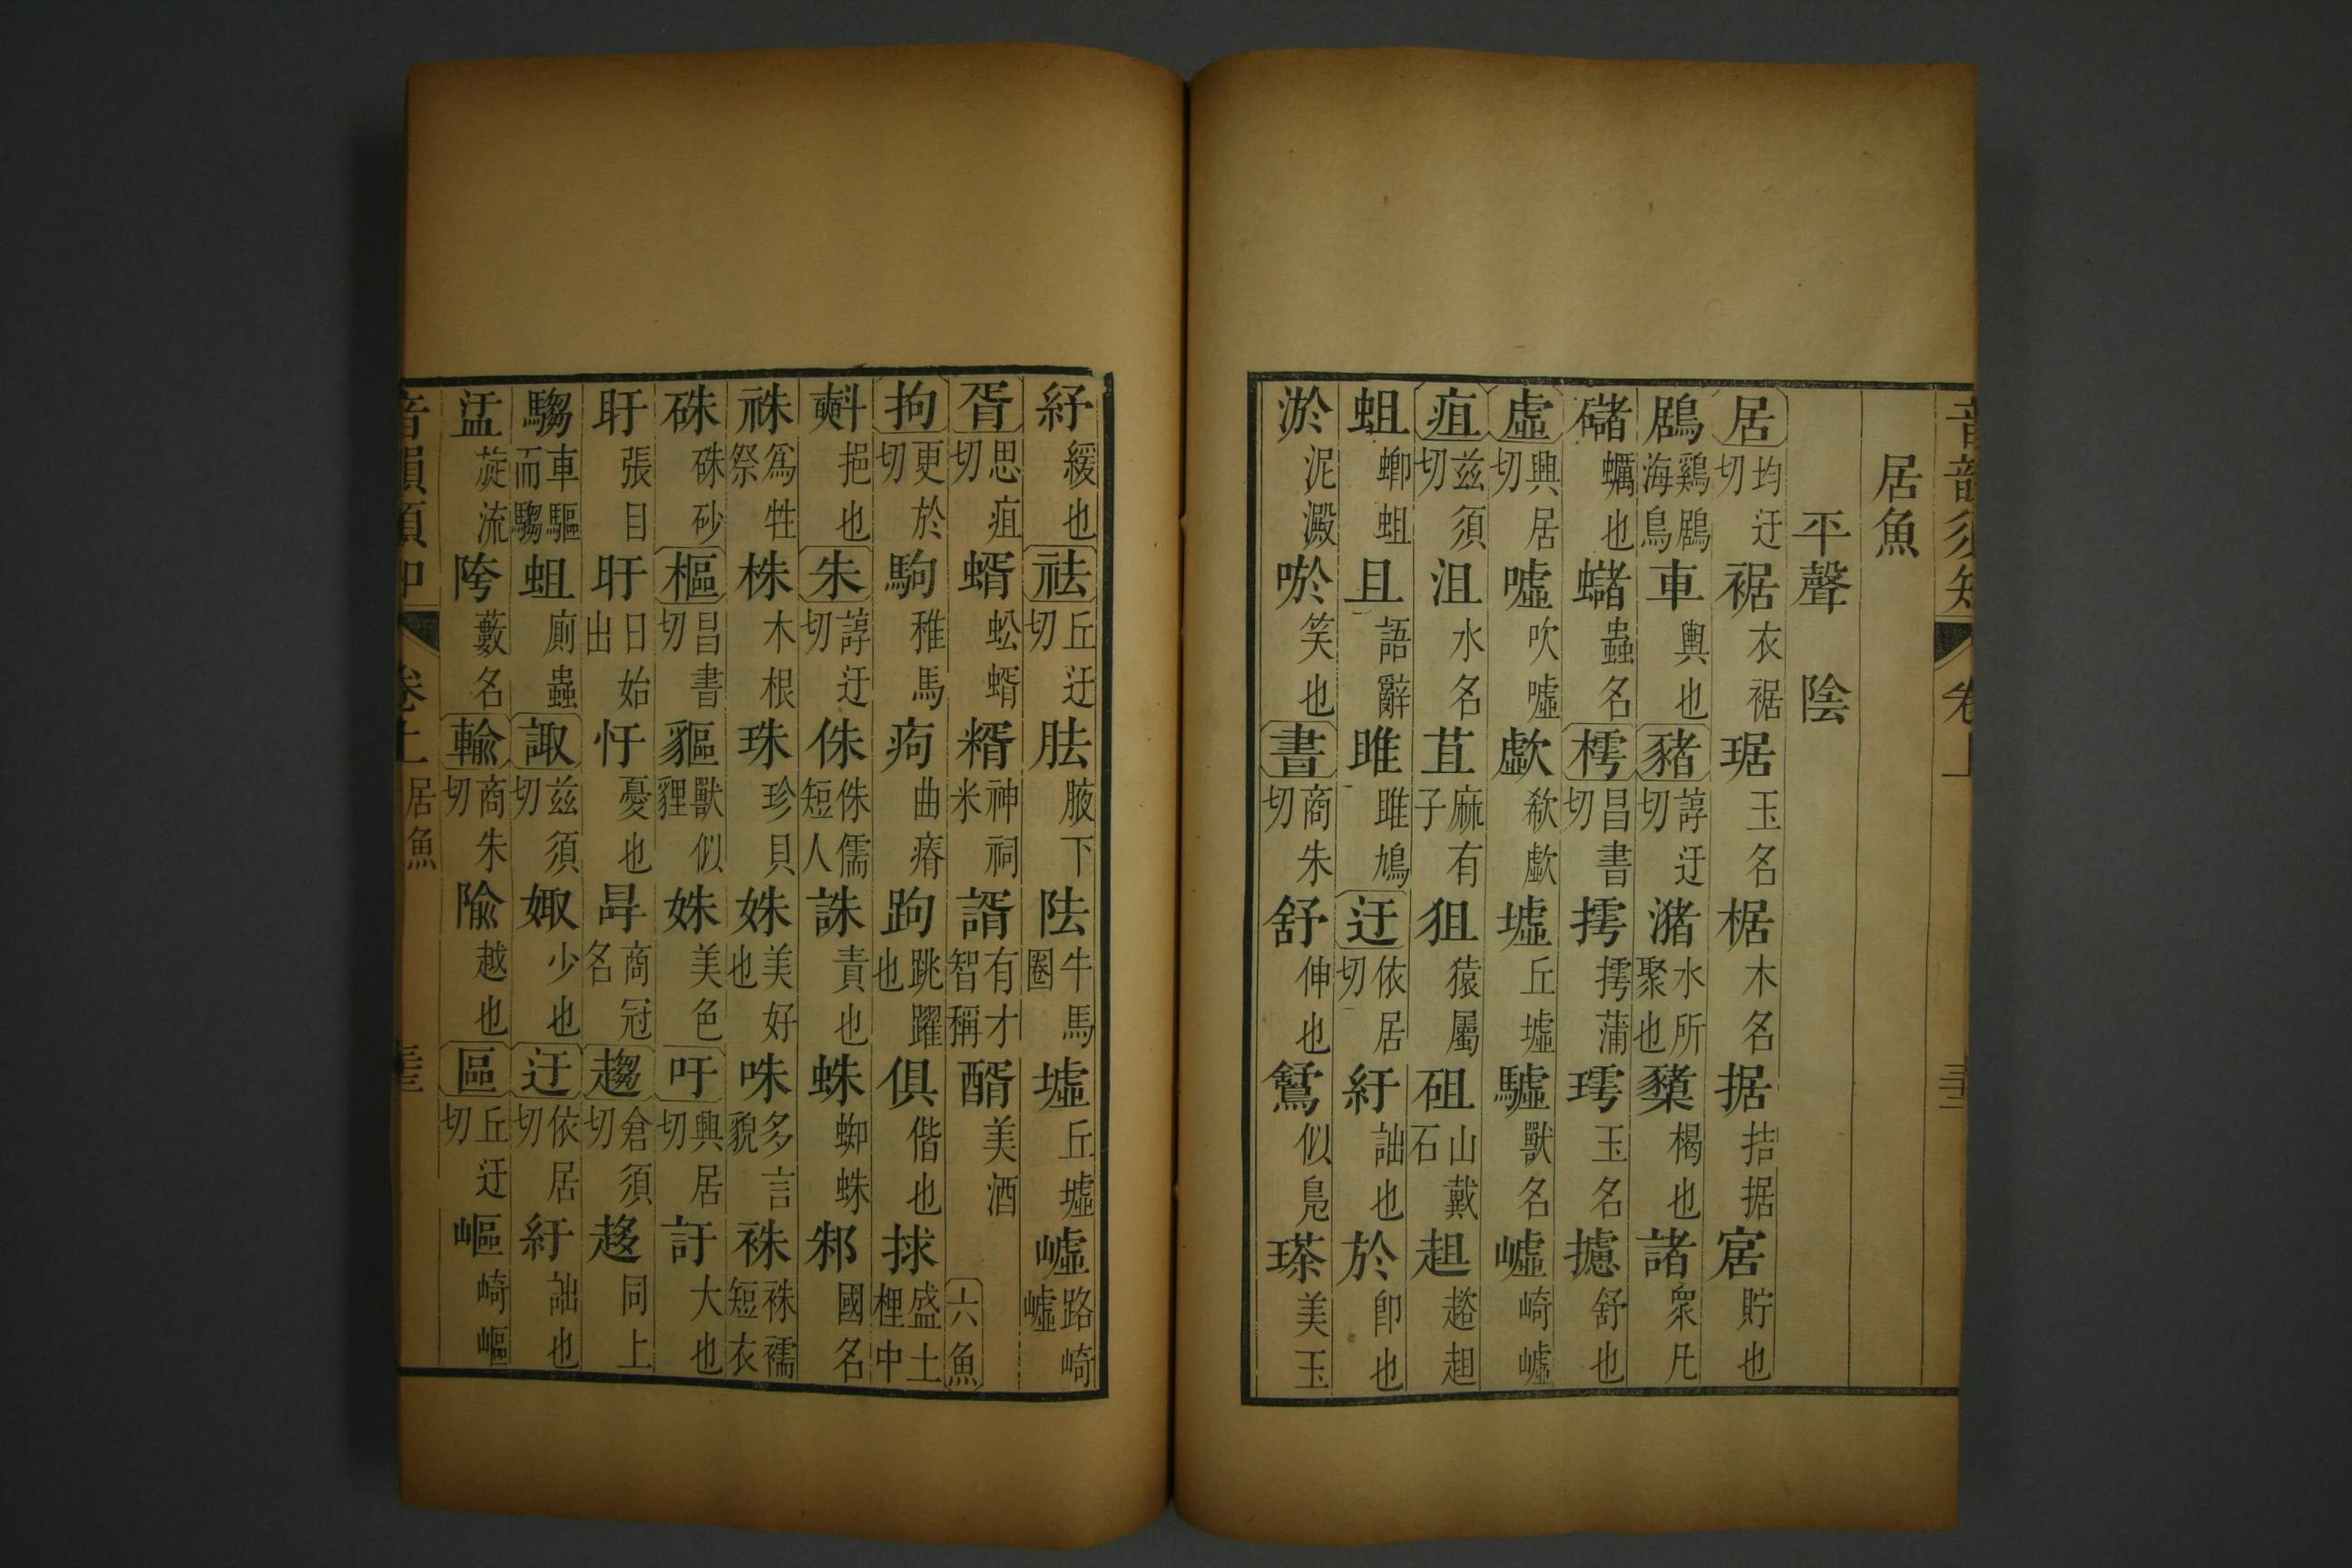 音韻須知 卷上
居魚
平聲 陰
居均迂切 裾衣裾 琚玉名 椐木名 据拮据 㝒貯也
鶋鷄鶋海鳥 車輿也 豬諄迂切 瀦水所聚也 櫫楬也 諸衆凡
礠蠣也 蠩蟲名 樗昌書切 摴摴蒲 㻬玉名 攄舒也
虛興居切 噓吹噓 歔欷歔 墟丘墟 驉獸名 嶇崎嶇
疽兹須切 沮水名 苴麻有子 狙猿屬 砠山戴石 趄趑趄
蛆螂蛆 且語辭 雎雎鳩 迂依居切 紆詘也 於卽也
淤泥澱 唹笑也 書商朱切 舒伸也 鵨似鳧 瑹美玉
紓緩也 祛丘迂切 胠腋下 阹牛馬圈 墟丘墟 嶇路崎嶇
胥思疽切 蝑蚣蝑 糈神祠米 諝有才智稱 醑美酒 六魚
拘更於切 駒稚馬 痀曲瘠 跔跳躍也 俱偕也 捄盛土梩中
㪺挹也 朱諄迂切 侏侏儒短人 誅責也 蛛蜘蛛 邾國名
祩爲牲祭 株木根 珠珍貝 姝美好也 咮多言貌 袾袾襦短衣
硃硃砂 樞昌書切 貙獸似貍 姝美色 吁興居切 訏大也
盱張目 旴日始出 忓憂也 冔商冠名 趨倉須切 趍同上
騶車驅而騶 蛆廁蟲 諏兹須切 娵少也 迂依居切 紆詘也
盓旋流 陓藪名 輸商朱切 隃越也 區丘迂切 嶇崎嶇
音韻須知 卷上 居魚